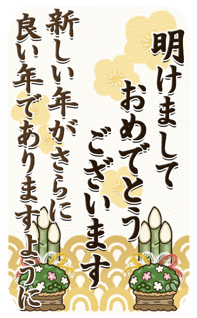 明けまして
おめでとう
ございます
新しい年がさらに
良い年でありますように